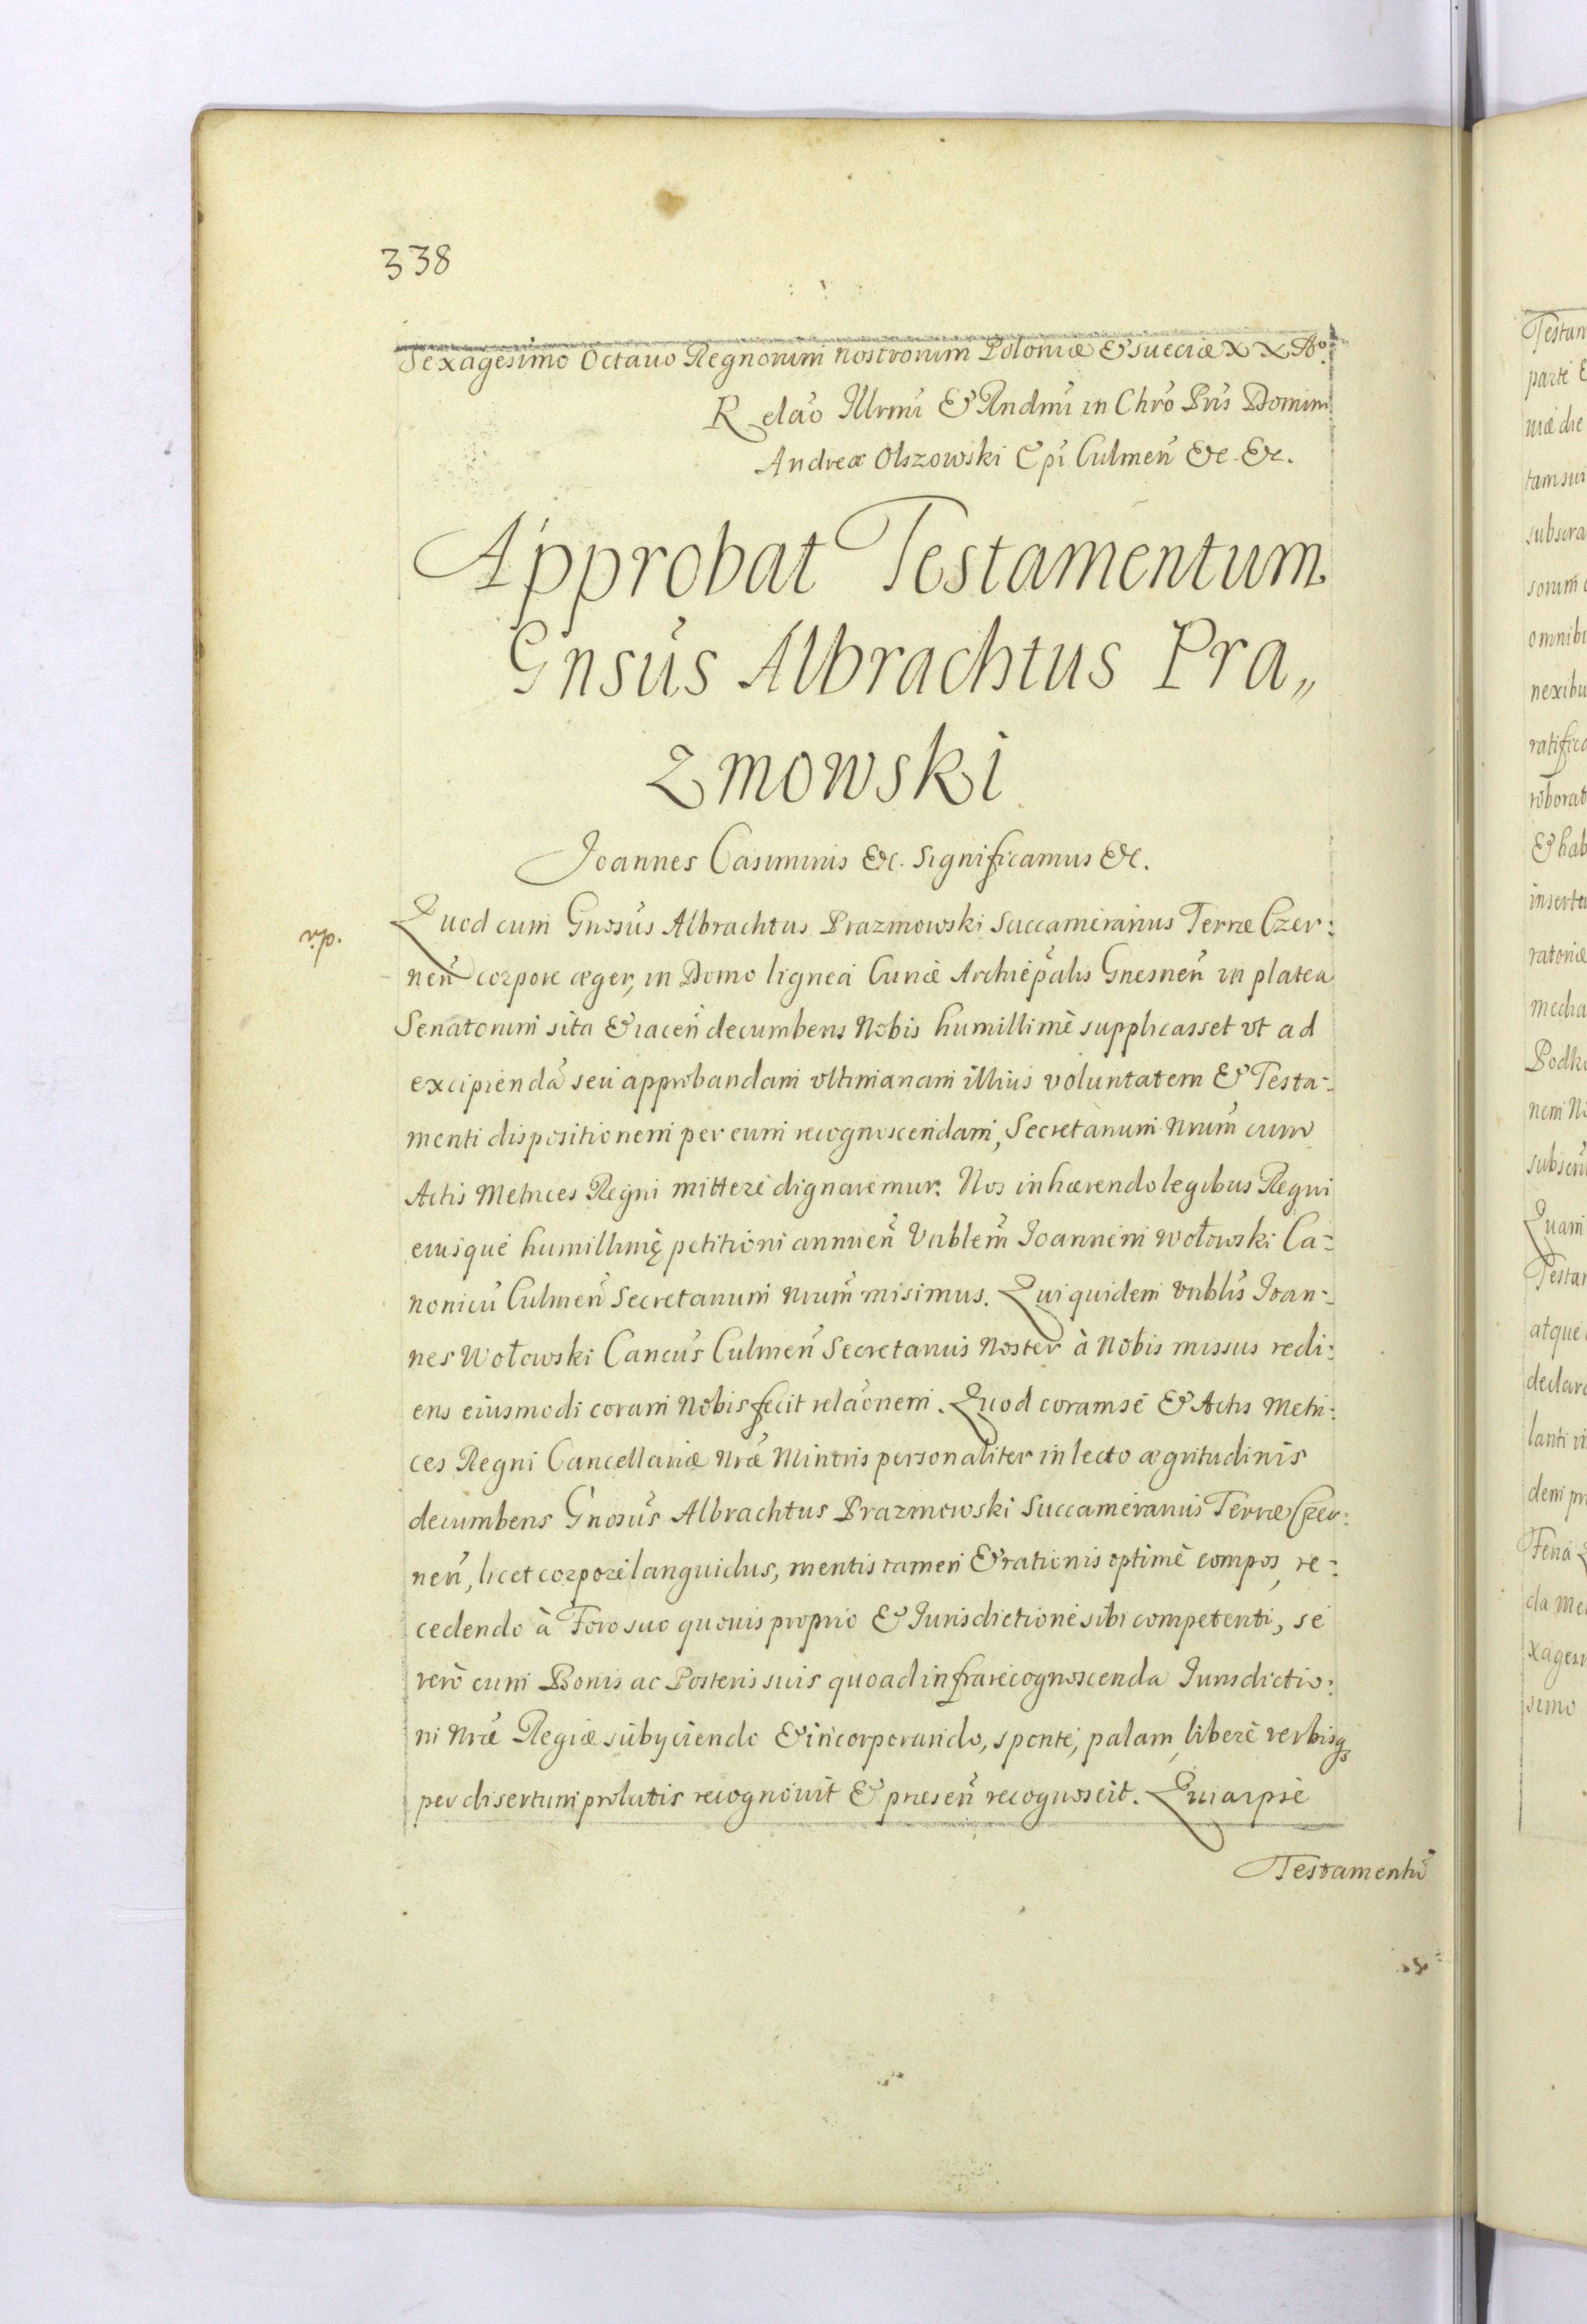 338
Sexagesimo Octauo Regnorum nostrorum Poloniæ & Sueciæ XX Ao.
Relaõ Illrmi & Rndmi in Chro Pris Domini
Andreæ Olszowski Epi Culmeñ &c. &c.
Approbat Testamentum
Gnsus Albrachtus Pra„
zmowski
Joannes Casimirus &c. Significamus &c.
Quod cum Gnosus Albrachtus Prazmowski Succamerarius Terræ Czer:
neñ corpore æger, in Domo lignea Curiæ Archiepalis Gnesneñ in platea
Senatorum sita & iaceñ decumbens Nobis humillimè supplicasset vt ad
excipiendã seu approbandam vltimariam illius voluntatem & Testa:
menti dispositionem per eum recognoscendam, Secretarium Nrum cum
Actis Metrices Regni mittere dignaremur. Nos inhærendo legibus Regni
eiusque humillimę petitioni annueñ Vnblem Joannem Wołowski Ca:
nonicũ Culmeñ Secretarium Nrum misimus. Qui quidem Vnblis Joan:
nes Wołowski Cancus Culmeñ Secretarius Noster à Nobis missus redi:
ens eiusmodi coram Nobis fecit relaõnem. Quod coram se & Actis Metri:
ces Regni Cancellariæ Nræ Minoris personaliter in lecto ægritudinis
decumbens Gnosus Albrachtus Prazmowski Succamerarius Terræ Czer:
neñ, licet corpore languidus, mentis tamen & rationis optimè compos, re:
cedendo à Foro suo quouis proprio & Jurisdictione sibi competenti, se
verò cum Bonis ac Posteris suis quoad infra recognoscenda Jurisdictio:
ni Nræ Regiæ subyciendo & incorporando, sponte, palam, liberè verbisqs
per disertum prolatis recognouit & præseñ recognoscit. Quia ipse
Testamentũ